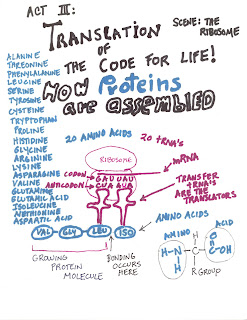 ACT III:
SCENE: THE
RIBOSOME
TRANSLATION
OF
THE CODE FOR LIFE!
HOW Proteins
are assembled
ALANINE
THREONINE
PHENYLALANINE
LEUCINE
SERINE
TYROSINE
CYSTEINE
TRYPTOPHAN
PROLINE
HISTIDINE
GLYCINE
ARGININE
LYSINE
ASPARAGINE
VALINE
GLUTAMINE
GLUTAMIC ACID
ISOLEUCINE
METHIONINE
ASPARTIC ACID
20 AMINO ACIDS
20 tRNA's
RIBOSOME
mRNA
CODON
GAU UAU
ANTICODON
CUA AUA
TRANSFER
tRNA's
ARE THE
TRANSLATORS
AMINO ACIDS
VAL GLY LEU ISO
GROWING
PROTEIN
MOLECULE
BONDING
OCCURS
HERE
AMINO
ACID
H-N
H
H
C
O
C-OH
R GROUP